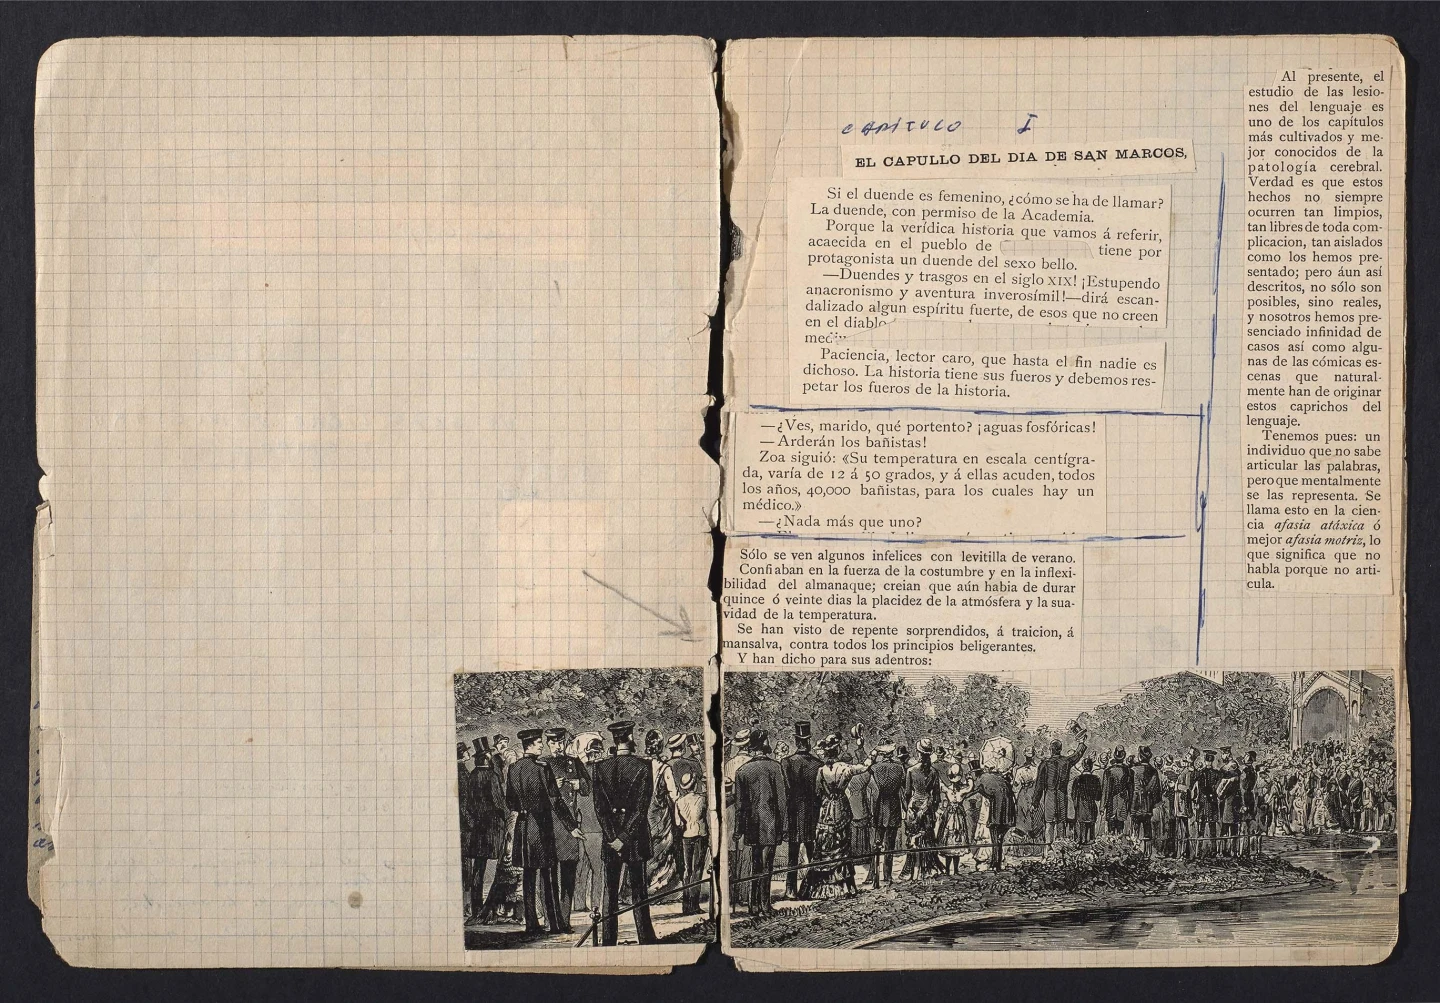 CAPÍTULO I
EL CAPULLO DEL DIA DE SAN MARCOS,
Si el duende es femenino, ¿cómo se ha de llamar?
La duende, con permiso de la Academia.
Porque la verídica historia que vamos á referir,
acaecida en el pueblo de tiene por
protagonista un duende del sexo bello.
—Duendes y trasgos en el siglo XIX! ¡Estupendo
anacronismo y aventura inverosímil!—dirá escan-
dalizado algun espíritu fuerte, de esos que no creen
en el diablo
Paciencia, lector caro, que hasta el fin nadie es
dichoso. La historia tiene sus fueros y debemos res-
petar los fueros de la historia.
—¿Ves, marido, qué portento? ¡aguas fosfóricas!
—Arderán los bañistas!
Zoa siguió: «Su temperatura en escala centígra-
da, varía de 12 á 50 grados, y á ellas acuden, todos
los años, 40,000 bañistas, para los cuales hay un
médico.»
—¿Nada más que uno?
Sólo se ven algunos infelices con levitilla de verano.
Confiaban en la fuerza de la costumbre y en la inflexi-
bilidad del almanaque; creian que aún habia de durar
quince ó veinte dias la placidez de la atmósfera y la sua-
vidad de la temperatura.
Se han visto de repente sorprendidos, á traicion, á
mansalva, contra todos los principios beligerantes.
Y han dicho para sus adentros:
Al presente, el
estudio de las lesio-
nes del lenguaje es
uno de los capítulos
más cultivados y me-
jor conocidos de la
patología cerebral.
Verdad es que estos
hechos no siempre
ocurren tan limpios,
tan libres de toda com-
plicacion, tan aislados
como los hemos pre-
sentado; pero áun así
descritos, no sólo son
posibles, sino reales,
y nosotros hemos pre-
senciado infinidad de
casos así como algu-
nas de las cómicas es-
cenas que natural-
mente han de originar
estos caprichos del
lenguaje.
Tenemos pues: un
individuo que no sabe
articular las palabras,
pero que mentalmente
se las representa. Se
llama esto en la cien-
cia afasia atáxica ó
mejor afasia motriz, lo
que significa que no
habla porque no arti-
cula.